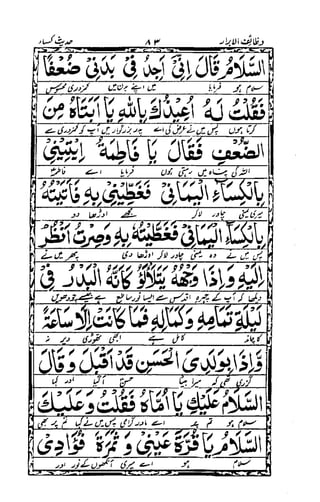 وظائف الابرار ۸۳ حدیث کساء
السَّلَامُ قَالَ اِنِّیْ اَجِدُ فِیْ بَدَنِیْ ضُعْفًا
سلام ہو فرمایا میں اپنے بدن میں کمزوری محسوس
فَقُلْتُ لَهٗ اُعِیْذُكَ بِاللهِ یَا اَبَتَاهُ مِنَ
کرتا ہوں پس میں نے عرض کی اے پدر بزرگوار میں آپ کو کمزوری سے
الضُّعْفِ فَقَالَ یَا فَاطِمَةُ اِیْتِیْنِیْ
اللہ کی پناہ میں دیتی ہوں فرمایا اے فاطمہ
بِالْكِسَاءِ الْیَمَانِیْ فَغَطِّیْنِیْ بِهٖ فَاَتَیْتُهٗ
میری یمنی چادر لاکر مجھے اوڑھا دو
بِالْكِسَاءِ الْیَمَانِیْ فَغَطَّیْتُهٗ بِهٖ وَصِرْتُ اَنْظُرُ
پس میں نے وہ یمنی چادر لاکر اوڑھا دی پھر میں نے
اِلَیْهِ وَاِذَا وَجْهُهٗ یَتَلَاْلَؤُ كَاَنَّهُ الْبَدْرُ فِیْ
دیکھا کہ آپ کے چہرہ اقدس سے ایسا نور ساطع ہے جیسے چودھویں
لَیْلَةِ تَمَامِهٖ وَكَمَالِهٖ فَمَا كَانَتْ اِلَّا سَاعَةً
کا چاند کامل ہے ابھی تھوڑی دیر نہ
وَّاِذَا بِوَلَدِیَ الْحَسَنِ قَدْ اَقْبَلَ وَقَالَ
گزری تھی کہ میرا بیٹا حسن آگیا اور کہا
السَّلَامُ عَلَیْكِ یَا اُمَّاهُ فَقُلْتُ وَعَلَیْكَ
سلام ہو تم پر اے مادر گرامی پس میں نے کہا تم پر بھی
السَّلَامُ یَا قُرَّةَ عَیْنِیْ وَثَمَرَةَ فُؤَادِیْ
سلام ہو اے میری آنکھوں کے نور اور